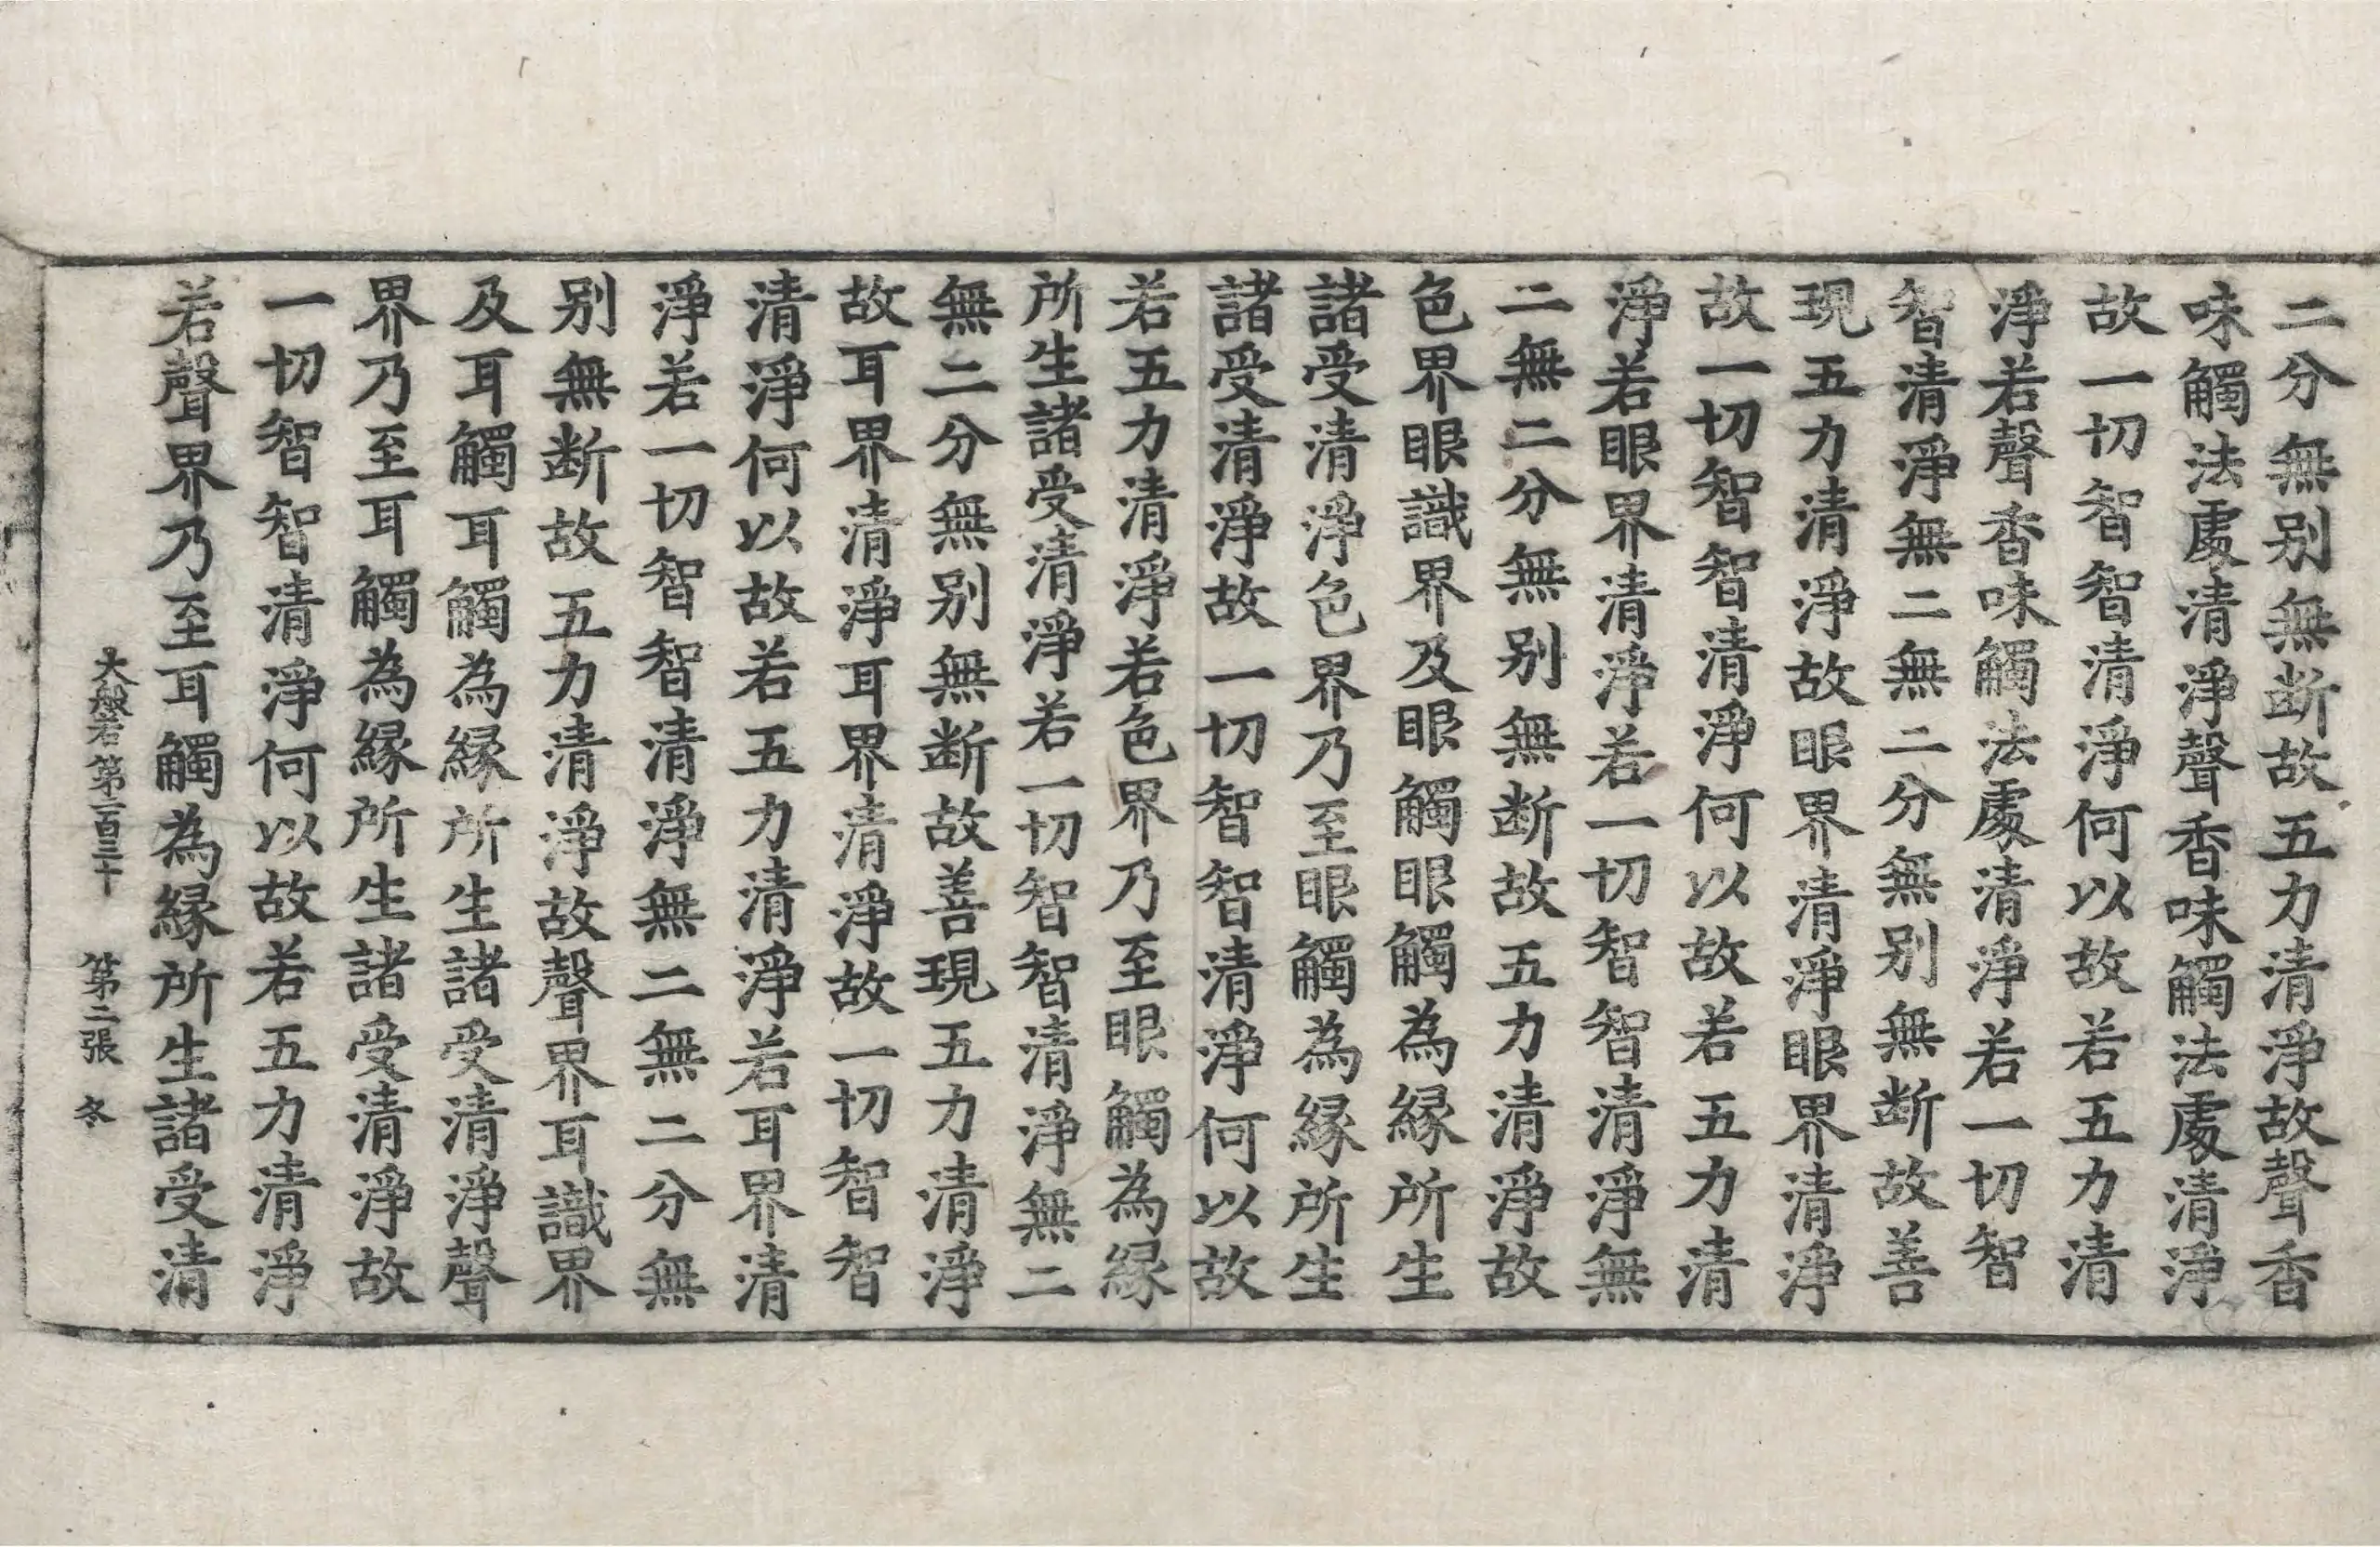 二分無别無断故五力清淨故聲香
味觸法處清淨聲香味觸法處清淨
故一切智智清淨何以故若五力清
淨若聲香味觸法處清淨若一切智
智清淨無二無二分無别無断故善
現五力清淨故眼界清淨眼界清淨
故一切智智清淨何以故若五力清
淨若眼界清淨若一切智智清淨無
二無二分無别無断故五力清淨故
色界眼識界及眼觸眼觸為縁所生
諸受清淨色界乃至眼觸為縁所生
諸受清淨故一切智智清淨何以故
若五力清淨若色界乃至眼觸為縁
所生諸受清淨若一切智智清淨無二
無二分無别無断故善現五力清淨
故耳界清淨耳界清淨故一切智智
清淨何以故若五力清淨若耳界清
淨若一切智智清淨無二無二分無
别無断故五力清淨故聲界耳識界
及耳觸耳觸為縁所生諸受清淨聲
界乃至耳觸為縁所生諸受清淨故
一切智智清淨何以故若五力清淨
若聲界乃至耳觸為縁所生諸受清
大般若第二百三十 第二張 冬